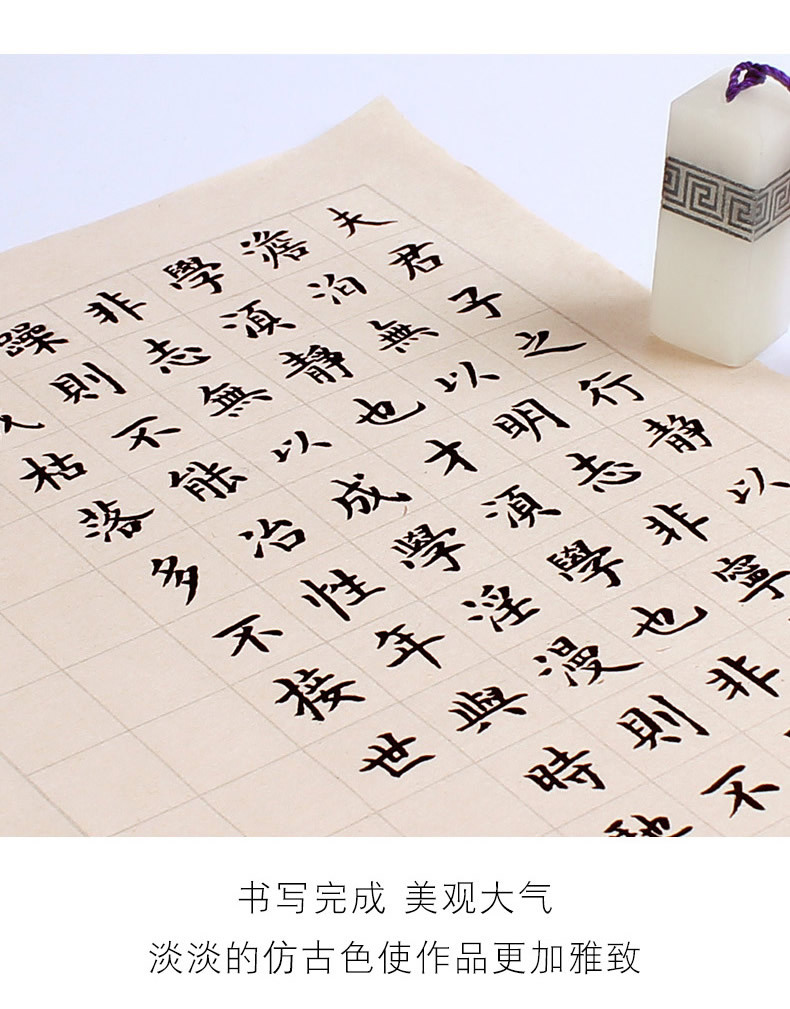 夫君子之行靜以
澹泊無以明志非寧
學湏靜也才湏學也非
非志無以成學淫漫則不
躁則不能冶性年與時
枯落多不接世
书写完成 美观大气
淡淡的仿古色使作品更加雅致